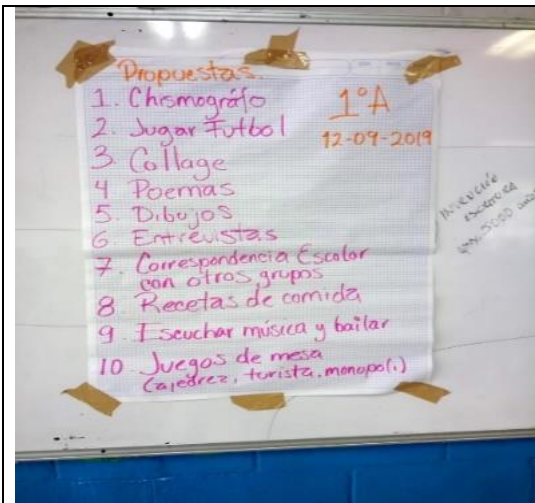 Propuestas.
1°A
12-09-2019
1. Chismográfo
2. Jugar Futbol
3. Collage
4 Poemas
5. Dibujos
6. Entrevistas
7. Correspondencia Escolar
con otros grupos
8 Recetas de comida
9 Escuchar música y bailar
10 Juegos de mesa
(ajedrez, turista, monopoli)